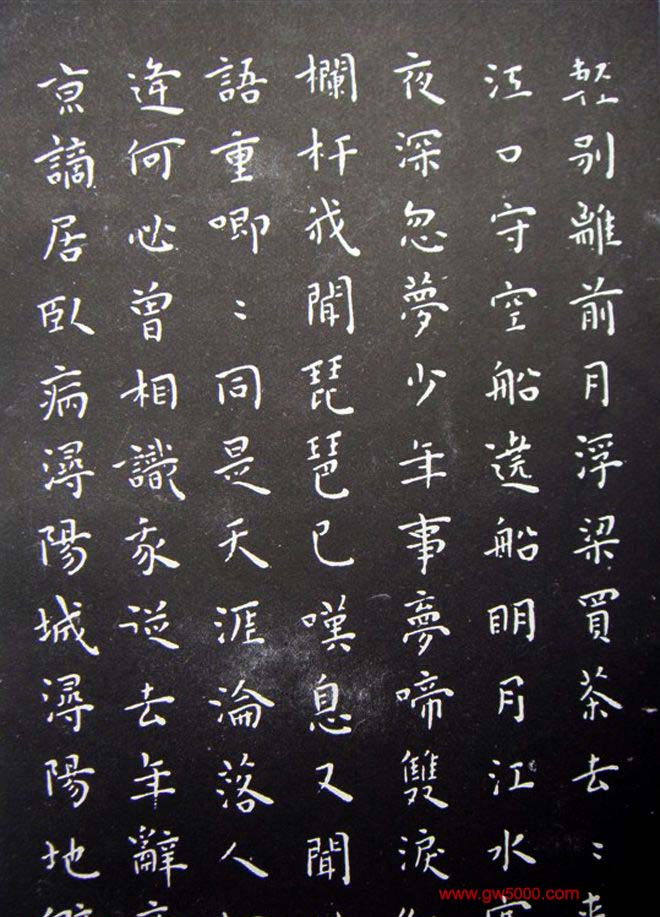 輕別離前月浮梁買茶去〻
江口守空船遶船明月江水
夜深忽夢少年事夢啼雙淚
欄杆我聞琵琶已嘆息又聞
語重唧〻同是天涯淪落人
逢何必曾相識我從去年辭
京謫居臥病潯陽城潯陽地
www.gw5000.com